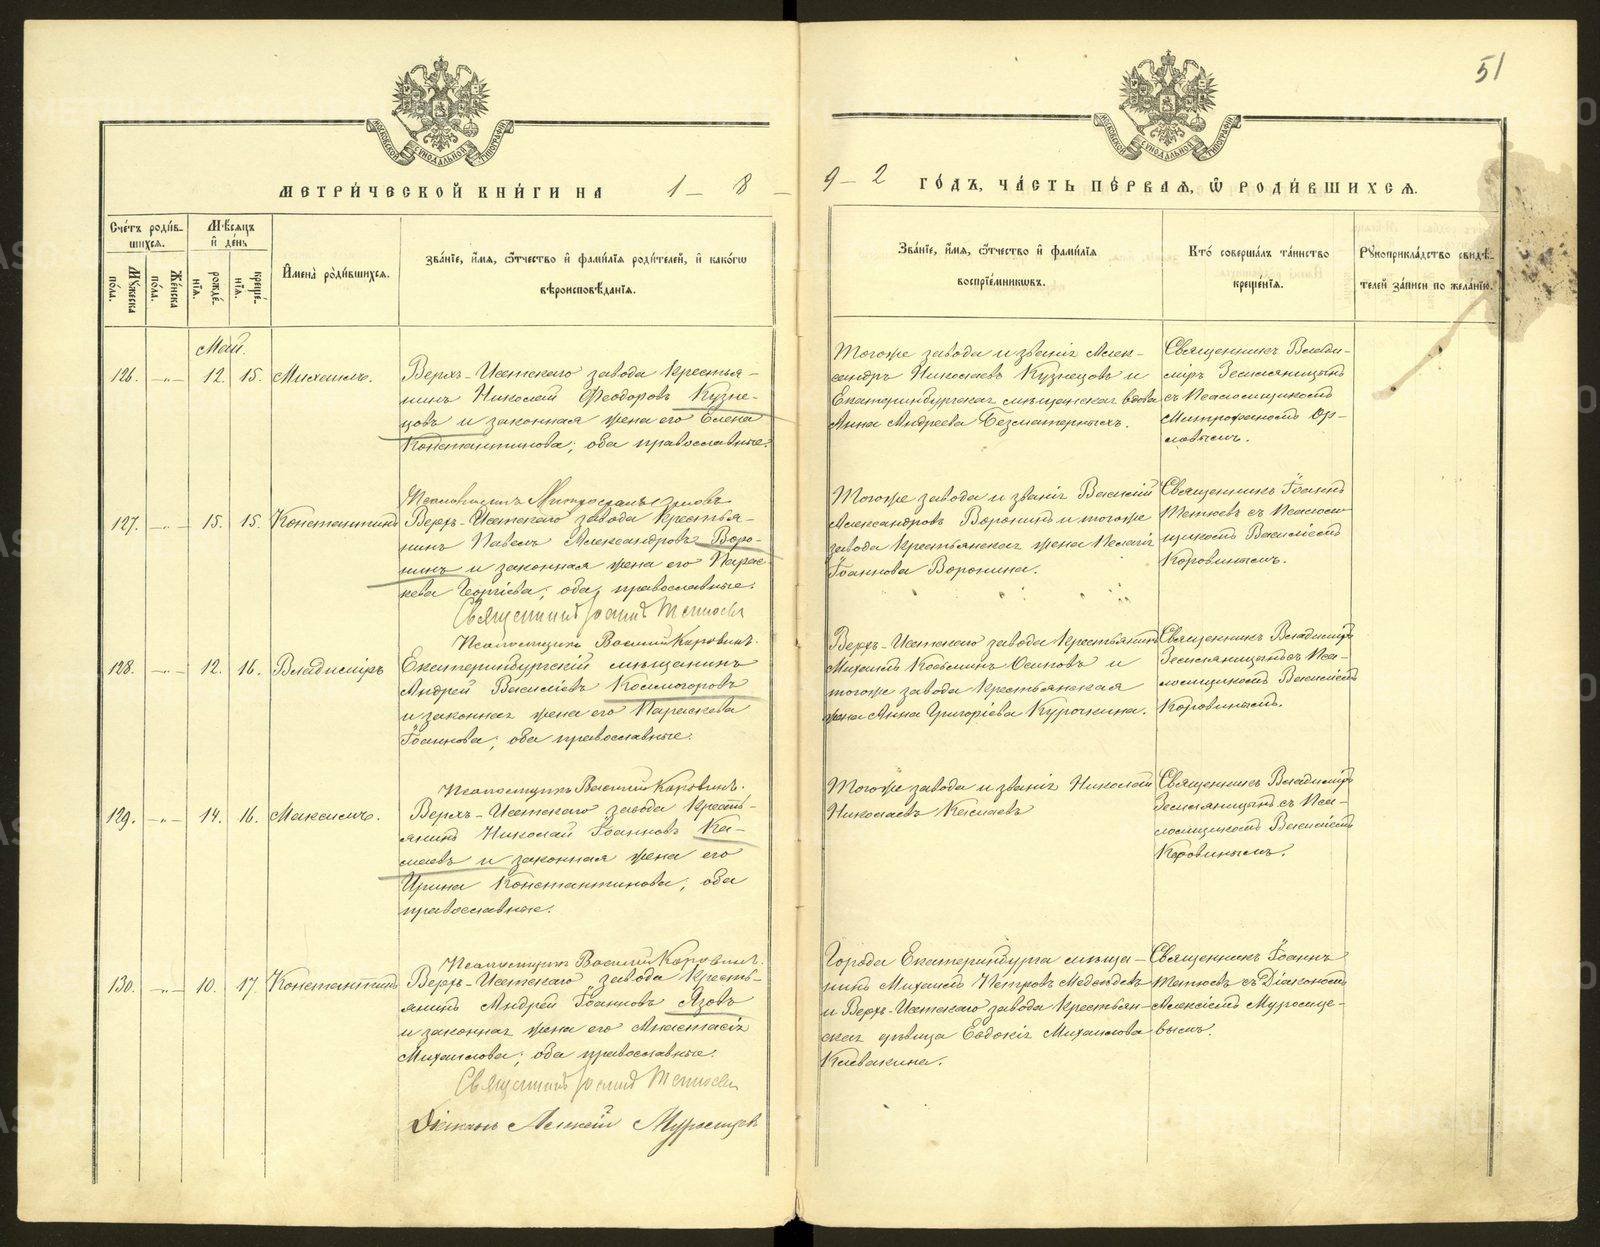 51
МОСКОВСКОЙ СѴНОДАЛЬНОЙ ТИПОГРАФІИ
МОСКОВСКОЙ СѴНОДАЛЬНОЙ ТИПОГРАФІИ
МЕТРИ́ЧЕСКОЙ КНИ́ГИ НА 1-8-
9-2 ГО́ДЪ, ЧА́СТЬ ПЕ́РВАЯ, Ѿ РОДИ́ВШИХСЯ.
Сче́тъ роди́вшихся.
Мꙋ́жеска по́ла.
Же́нска по́ла.
Мѣ́сяцъ и҆ де́нь
рожде́нїѧ.
креще́нїѧ.
И҆мена̀ роди́вшихся.
Зва́нїе, и҆́мѧ, ѻ҆́тчество и҆ фами́лїѧ роди́телей, и҆ како́гѡ
вѣроисповѣ́данїѧ.
Зва́нїе, и҆́мѧ, ѻ҆́тчество и҆ фами́лїѧ
воспрїе́мникѡвъ.
Кто̀ соверша́лъ та́инство
креще́нїѧ.
Рꙋкоприкла́дство свидѣ́-
телей за́писи по жела́нїю.
Май.
126. -„- 12. 15. Михаилъ.
Верхъ-Исетскаго завода крестья-
нинъ Николай Феодоровъ Кузне-
цовъ и законная жена его Елена
Константинова; оба православные.
Тогоже завода и званія Алек-
сандръ Николаевъ Кузнецовъ и
Екатеринбургская мѣщанская вдова
Анна Андреева Безматерныхъ.
Священникъ Влади-
міръ Земляницынъ
съ Псаломщикомъ
Митрофаномъ Ор-
ловымъ.
Псаломщикъ Митрофанъ Орловъ
127. -„- 15. 15. Константинъ
Верхъ-Исетскаго завода крестья-
нинъ Павелъ Александровъ Воро-
нинъ и законная жена его Парас-
кева Георгіева; оба православные.
Тогоже завода и званія Василій
Александровъ Воронинъ и тогоже
завода крестьянская жена Пелагія
Іоаннова Воронина.
Священникъ Іоаннъ
Тетюевъ съ Псалом-
щикомъ Василіемъ
Коровинымъ.
Священникъ Іоаннъ Тетюевъ
Псаломщикъ Василій Коровинъ.
128. -„- 12. 16. Владиміръ
Екатеринбургскій мѣщанинъ
Андрей Васильевъ Космогоровъ
и законная жена его Параскева
Іоаннова; оба православные.
Верхъ-Исетскаго завода крестьянинъ
Михаилъ Косьминъ Осиповъ и
тогоже завода крестьянская
жена Анна Григоріева Курочкина.
Священникъ Владиміръ
Земляницынъ съ Пса-
ломщикомъ Василіемъ
Коровинымъ.
Псаломщикъ Василій Коровинъ.
129. -„- 14. 16. Максимъ.
Верхъ-Исетскаго завода крестья-
янинъ Николай Іоанновъ Ка-
маевъ и законная жена его
Ирина Константинова; оба
православные.
Тогоже завода и званія Николай
Николаевъ Камаевъ
Священникъ Владиміръ
Земляницынъ съ Пса-
ломщикомъ Василіемъ
Коровинымъ.
Псаломщикъ Василій Коровинъ.
130. -„- 10. 17. Константинъ
Верхъ-Исетскаго завода кресть-
янинъ Андрей Іоанновъ Язовъ
и законная жена его Анастасія
Михаилова; оба православные.
Города Екатеринбурга мѣща-
нинъ Михаилъ Петровъ Медвѣдевъ
и Верхъ-Исетскаго завода крестьян-
ская дѣвица Евдокія Михаилова
Калвакина.
Священникъ Іоаннъ
Тетюевъ съ Діакономъ
Алексіемъ Муромце-
вымъ.
Священникъ Іоаннъ Тетюевъ
Діаконъ Алексій Муромцевъ